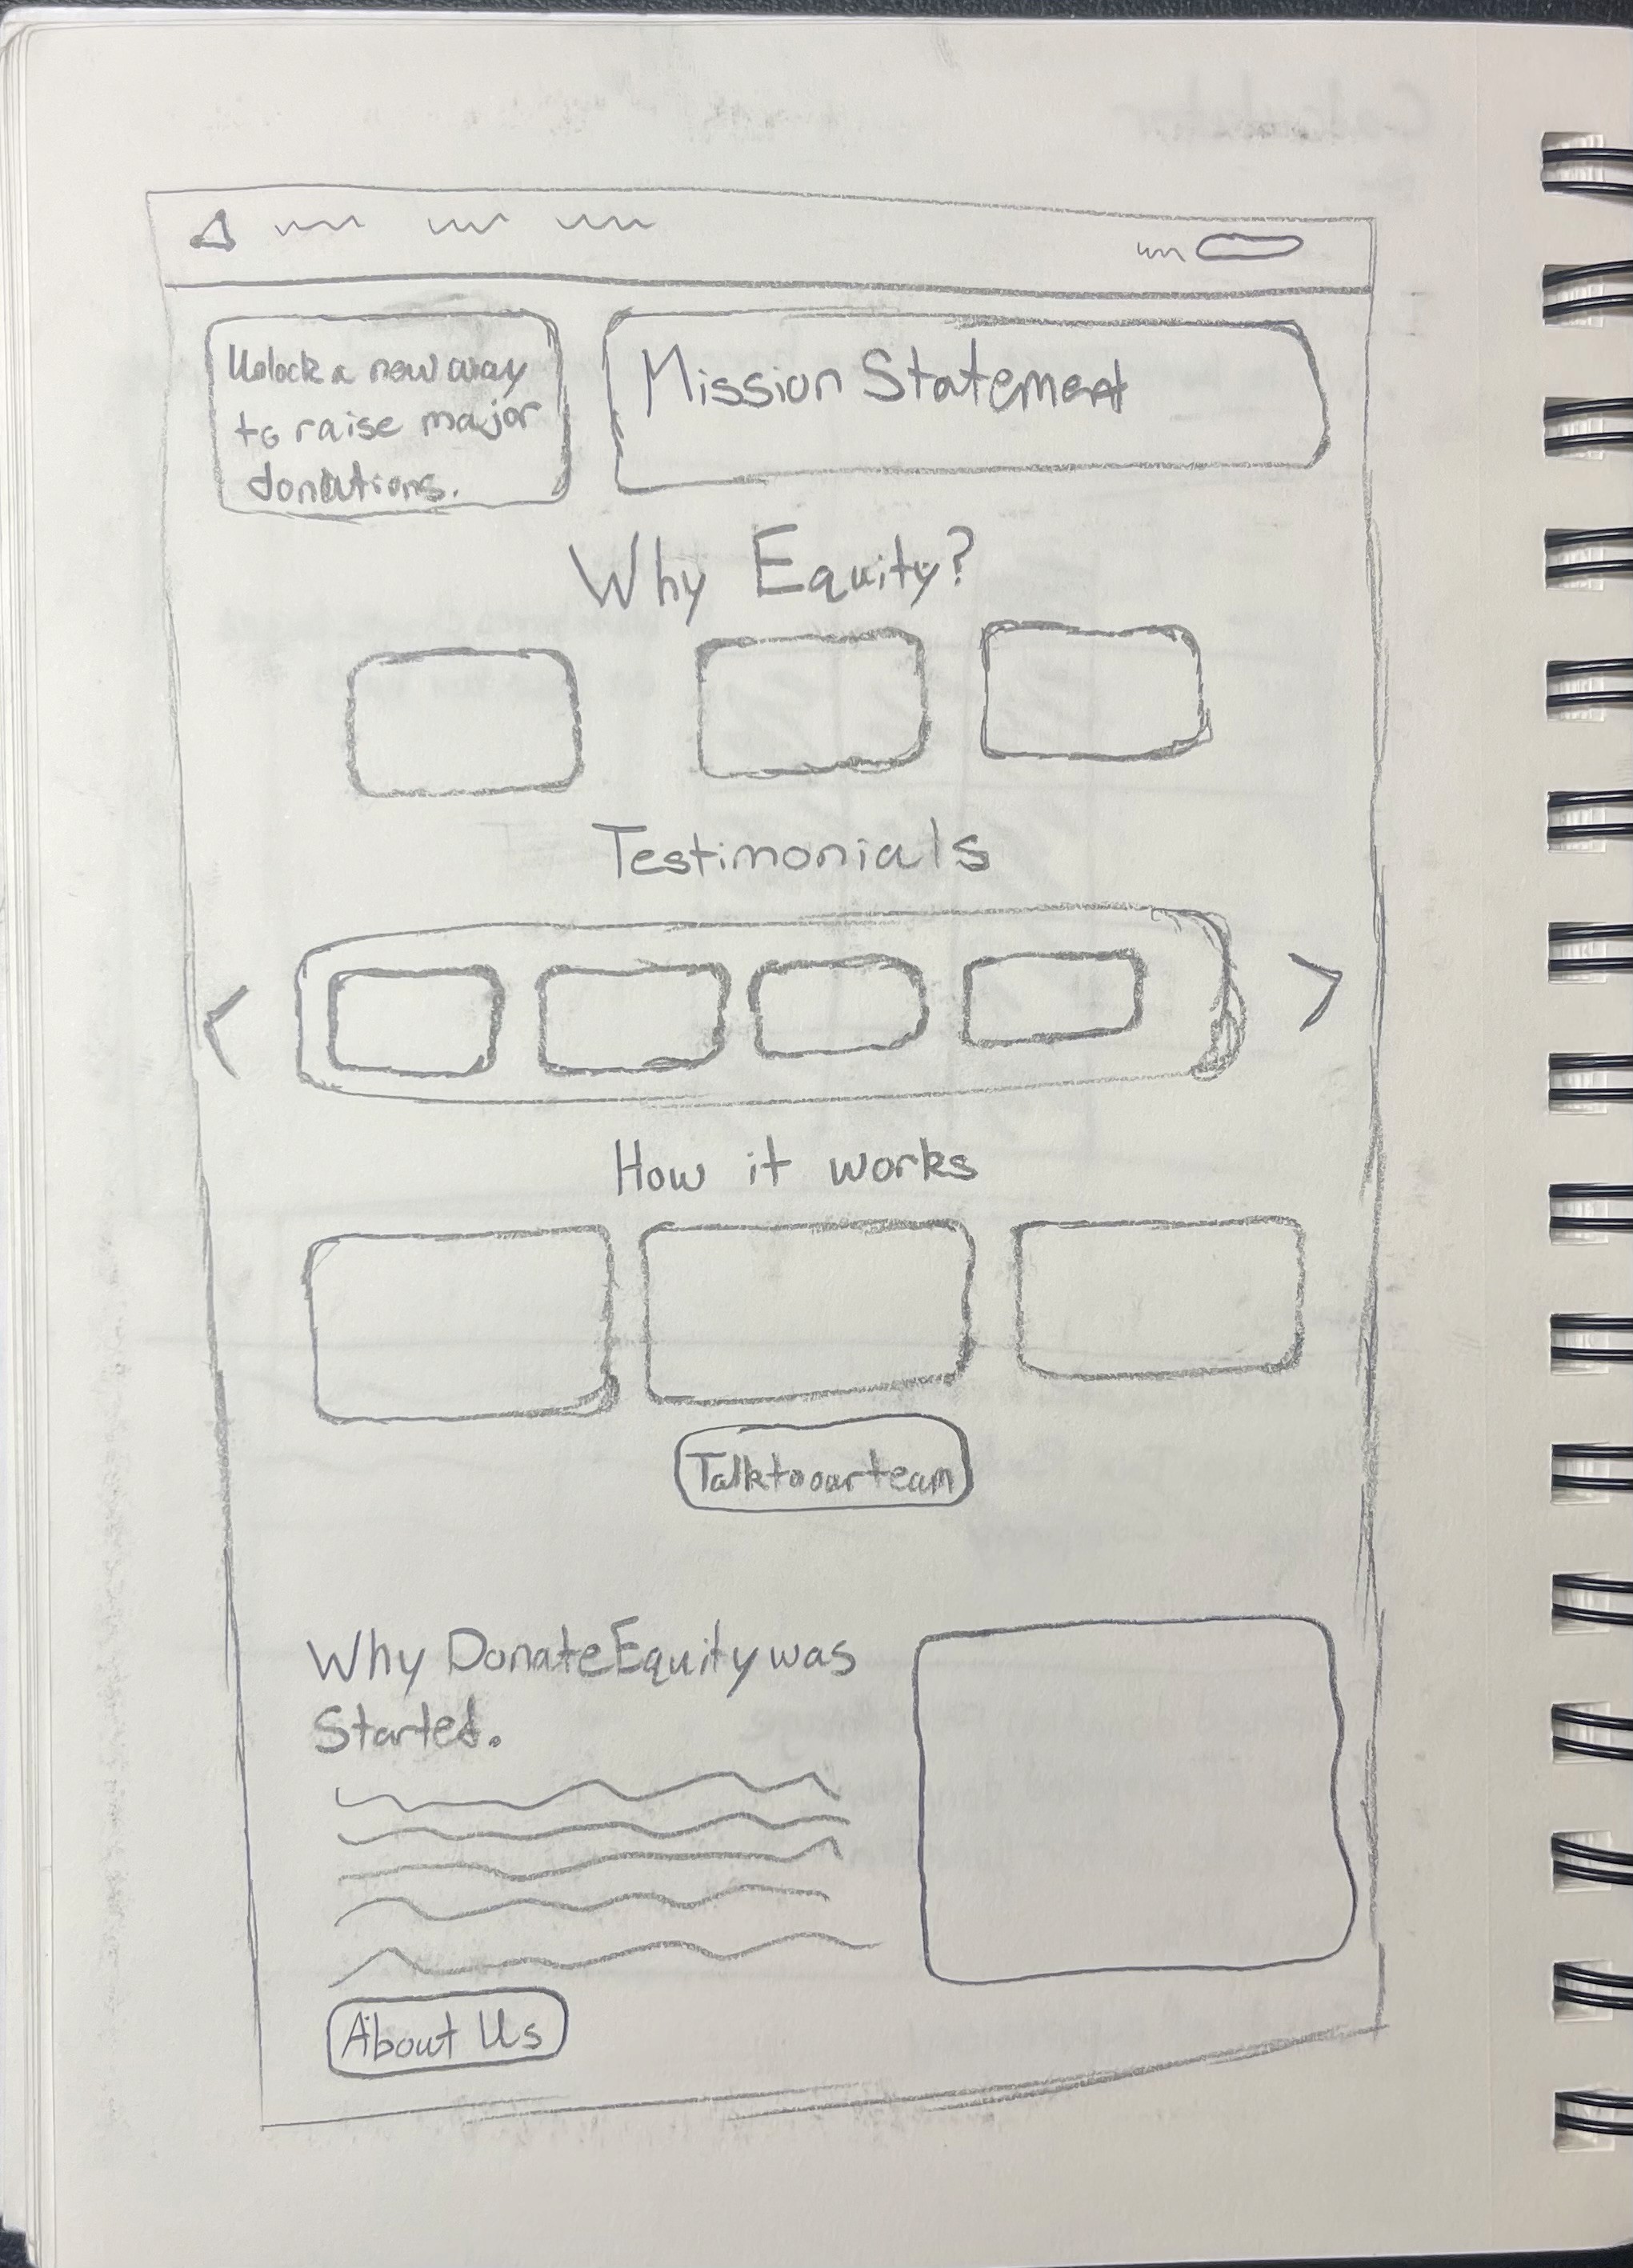 Unlock a new way
to raise major
donations.
Mission Statement
Why Equity?
Testimonials
<
>
How it works
Talk to our team
Why DonateEquity was
Started.
About Us